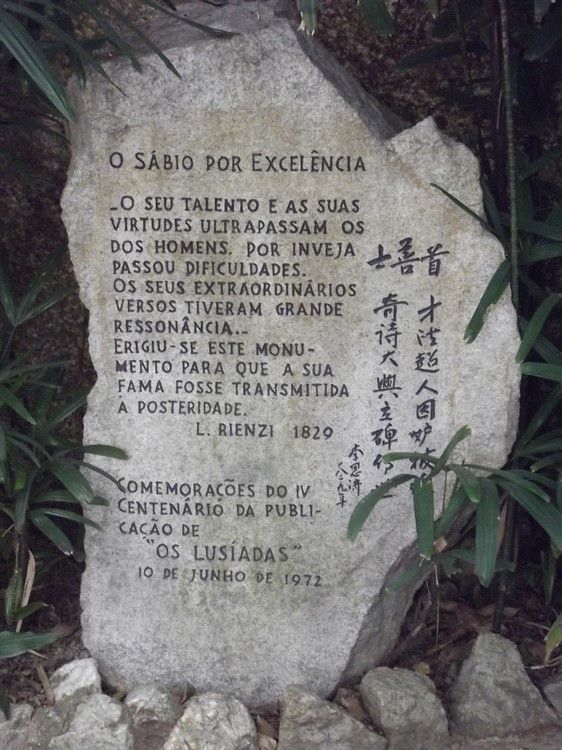 O SÁBIO POR EXCELÊNCIA
_O SEU TALENTO E AS SUAS
VIRTUDES ULTRAPASSAM OS
DOS HOMENS. POR INVEJA
PASSOU DIFICULDADES..
OS SEUS EXTRAORDINÁRIOS
VERSOS TIVERAM GRANDE
RESSONÂNCIA._
ERIGIU-SE ESTE MONU-
MENTO PARA QUE A SUA
FAMA FOSSE TRANSMITIDA
À POSTERIDADE.
L. RIENZI 1829
COMEMORAÇÕES DO IV
CENTENÁRIO DA PUBLI-
CAÇÃO DE
"OS LUSÍADAS"
10 DE JUNHO DE 1972
首善士
才德超人因妒被
奇诗大興立碑传世